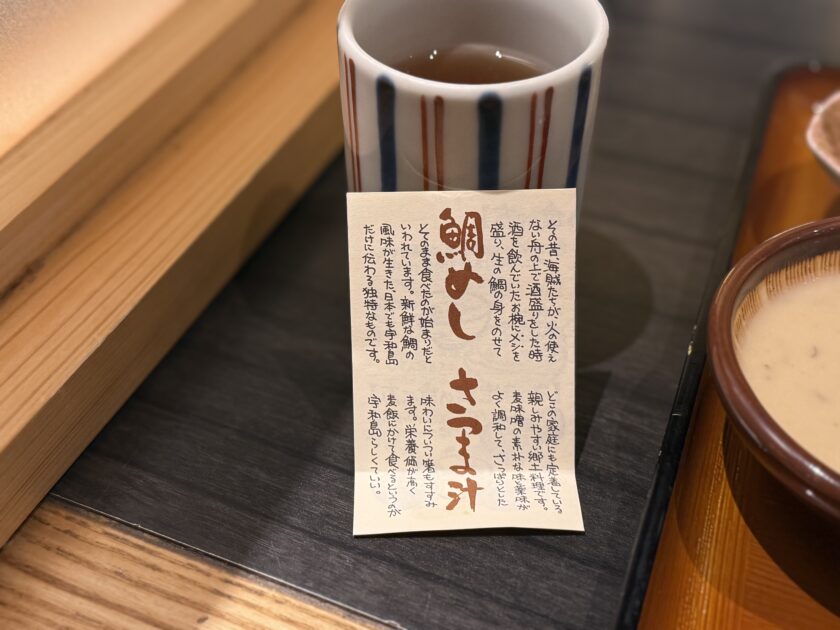 その昔海賊たちが、火の使え
ない舟の上で酒盛りをした時
酒を飲んでいたお椀にメシを
盛り、生の鯛の身をのせて
鯛めし
とてのまま食べたのが始まりだと
いわれています。新鮮な鯛の
風味が生きた、日本でも宇和島
だけに伝わる独特なものです。
どこの家庭にも定着している
親しみやすい郷土料理です。
麦味噌の素朴な味と薬味が
よく調和して、さっぱりとした
さつま汁
味わいについつい箸もすすみ
ます。栄養価が高く
麦飯にかけて食べるというのが
宇和島らしくていい。